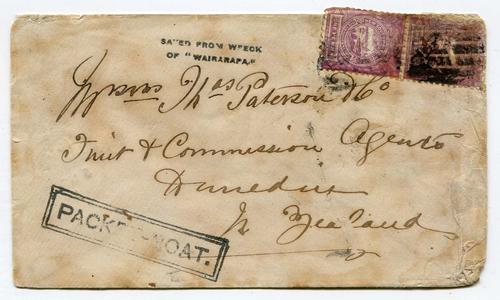 SAVED FROM WRECK
OF "WAIRARAPA."
Messrs Thos Paterson & Co
Fruit & Commission Agents
Dunedin
N Zealand
PACKET-BOAT.